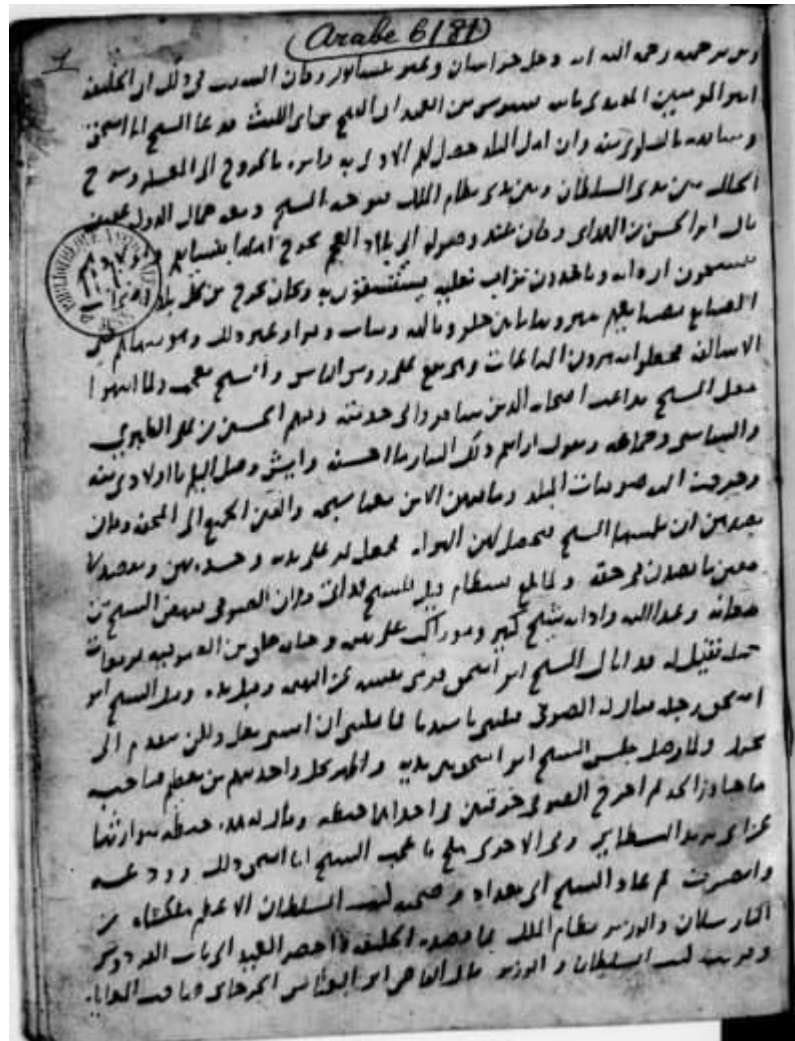 (Arabe 6181)
1
رحمه الله انه دخل خراسان وعبر نيسابور وكان السبب في ذلك ان الخليفة
امير المومنين من العميد ابي الفتح بن ابي الليث فدعا الشيخ ابا اسحق
وشافهه بالشكوى منه وان اهل البلد حصل لهم الاذى به وامره بالخروج الى العسكر وشرح
الحال بين يدي السلطان وبين يدي نظام الملك فتوجه الشيخ ومعه جمال الدولة عفيف
قال ابو الحسن بن الهمداني وكان عند وصوله الى بلاد العجم يخرج اهلها بنسائهم واولادهم
فيمسحون اردانه وياخذون تراب نعليه يستشفون به وكان يخرج من كل بلد
الصنايع بصنايعهم وينثرونها ما بين حلوى وفاكهة وثياب وفراء وغير ذلك وهو ينهاهم حتى
الاساكفة فجعلوا ينثرون المداسات وهي تقع على روس الناس والشيخ يعجب ولما انتهوا
جعل الشيخ يداعب اصحابه الذين سافروا في خدمته وفيهم الحسين بن علي الطبري
والشاشي وجماعة ويقول رايتم ذلك النثار ما احسنه وايش وصل اليكم يا اولادي منه
وخرجت اليه صوفيات البلد وما فيهن الا من معها سبحة والقين الجميع الى المحفة وكان
قصدهن ان يلمسها الشيخ لتحصل لهن البركة فجعل يمرها على بدنه وجسده
فيهن ما يقصدن في حقه ولما بلغ بسطام قيل للشيخ قد اتى فلان الصوفي فنهض الشيخ من
مكانه وعدا اليه واذا به شيخ كبير وهو راكب على بهيم وخلفه خلق من الصوفية بمرقعات
جميلة فقيل له قد اتاك الشيخ ابو اسحق فرمى بنفسه عن البهيم وقبل يده وقبل الشيخ ابو
اسحق رجله فقال له الصوفي قتلتني يا سيدنا فما يمكنني ان امشي معك ولكن تتقدم الى
ولما وصل جلس الشيخ ابو اسحق بين يديه واظهر كل واحد منهم من تعظيم صاحبه
ما جاوز الحد ثم اخرج الصوفي خرقتين في احداهما حنطة وقال له هذه حنطة نتوارثها
عن ابي يزيد البسطامي وفي الاخرى ملح فاعجب الشيخ ابا اسحق ذلك وودعه
وانصرف ثم عاد الشيخ الى بغداد وصحبه كتب السلطان الاعظم ملكشاه بن
البارسلان والوزير نظام الملك بما قصده الخليفة فاحضر العميد الى باب الفردوس
وقريت كتب السلطان والوزير قال القاضي ابو العباس الجرجاني صاحب المعاياة